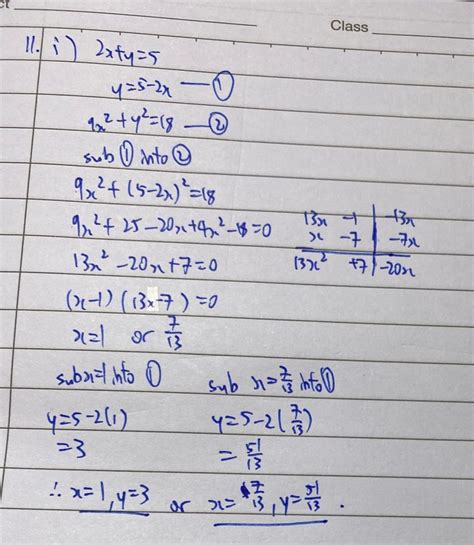 ct
Class
11. i) 2x+y=5
y=5-2x — ①
9x²+y²=18 — ②
sub ① into ②
9x²+(5-2x)²=18
9x²+25-20x+4x²-18=0
13x -1 | -13x
x -7 | -7x
13x² +7 | -20x
13x²-20x+7=0
(x-1)(13x-7)=0
x=1 or 7/13
sub x=1 into ①
sub x=7/13 into ①
y=5-2(1)
y=5-2(7/13)
=3
=51/13
∴ x=1, y=3 or x=7/13, y=51/13.